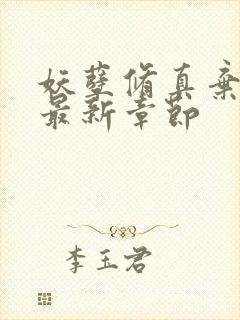 妖孽修真弃
最新章节
李玉君